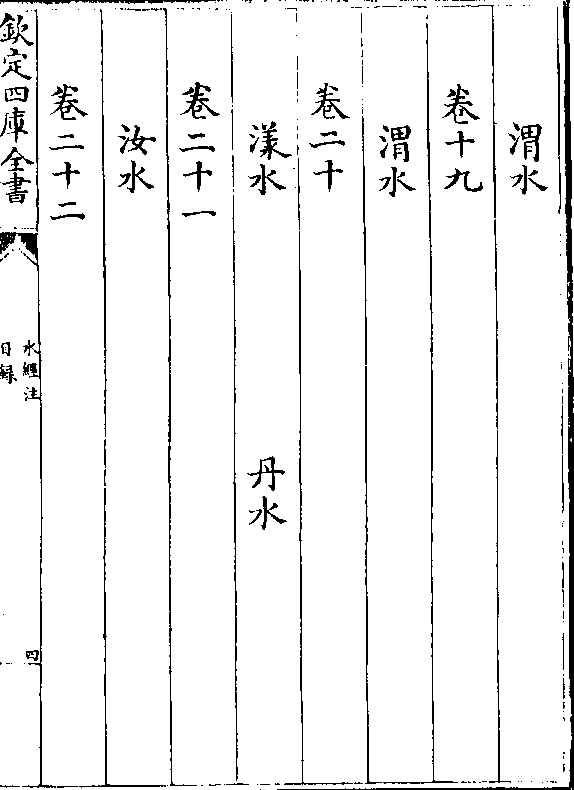 渭水
卷十九
渭水
卷二十
漾水 丹水
卷二十一
汝水
卷二十二
欽定四庫全書
水經注
目録
四